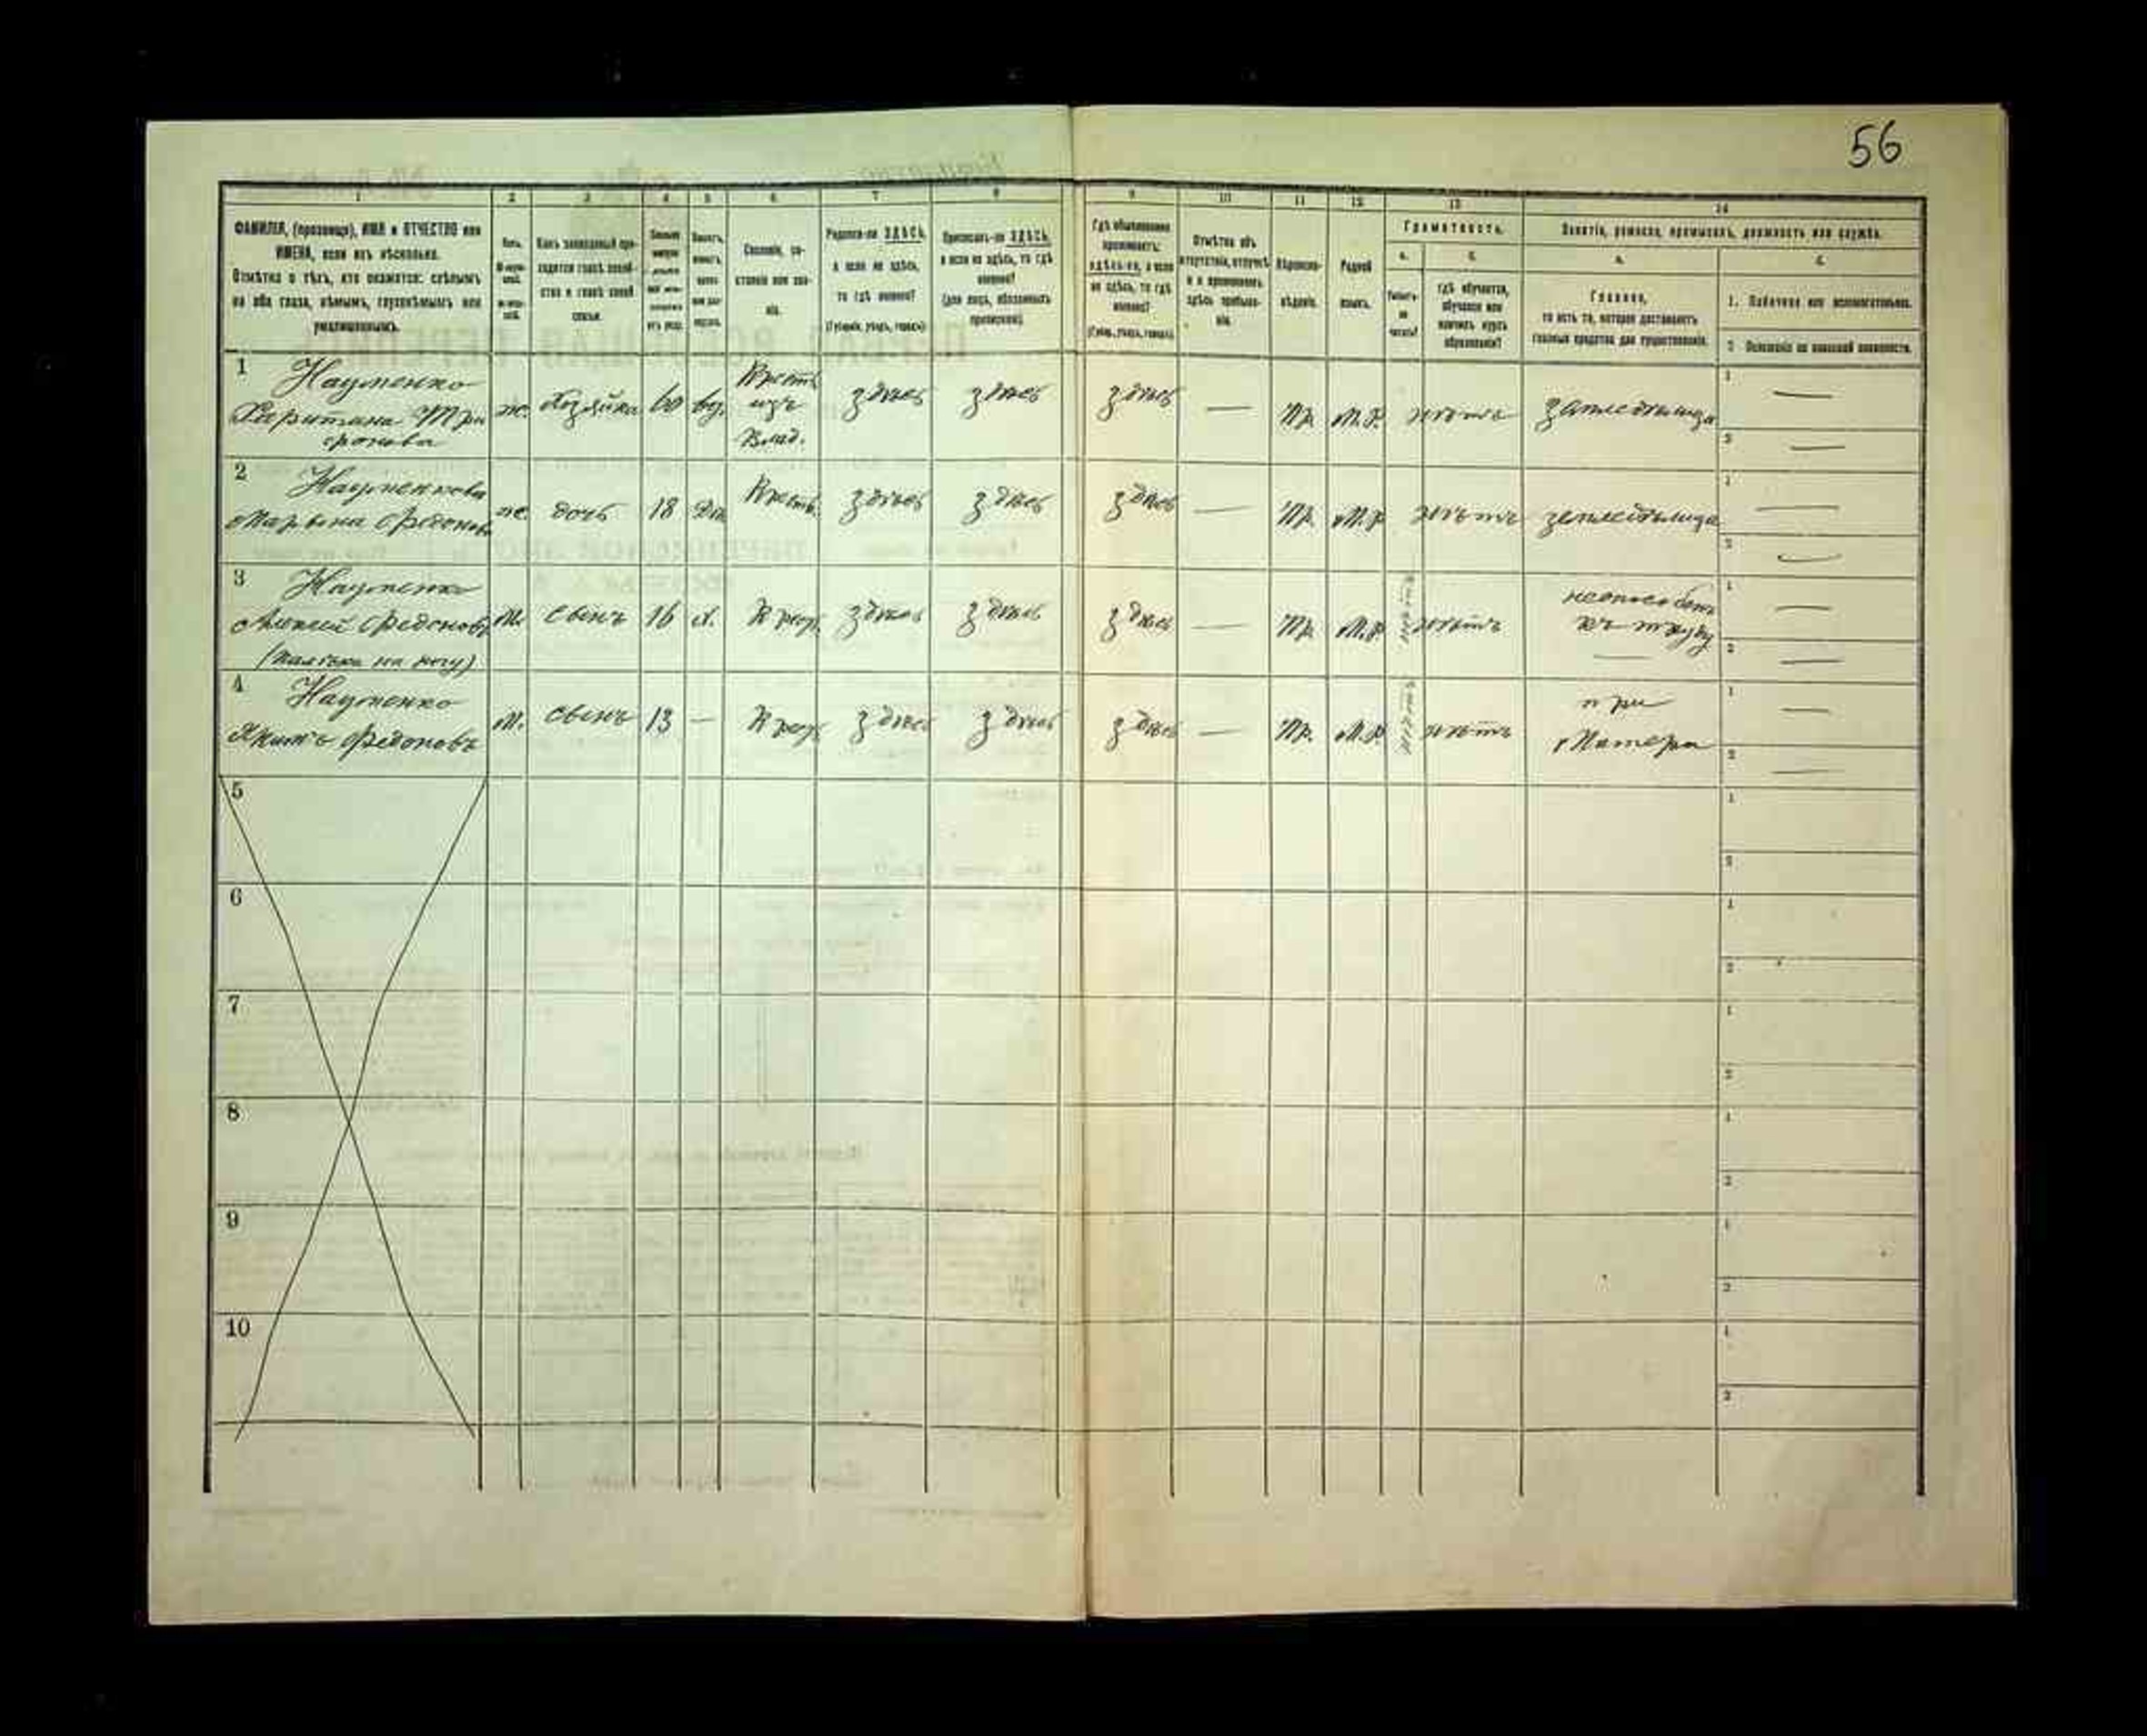 56
1 2 3 4 5 6 7 8 9 10 11 12 13 14
ФАМИЛІЯ, (прозвище), ИМЯ и ОТЧЕСТВО или
ИМЕНА, если ихъ нѣсколько.
Отмѣтка о тѣхъ, кто окажется: слѣпымъ
на оба глаза, нѣмымъ, глухонѣмымъ или
умалишеннымъ.
Полъ.
Какъ записанный при-
ходится главѣ хозяй-
ства и главѣ своей
семьи.
Сословіе, со-
стояніе или зва-
ніе.
Родился-ли ЗДѢСЬ,
а если не здѣсь,
то гдѣ именно?
(Губернія, уѣздъ, городъ)
Приписанъ-ли ЗДѢСЬ,
а если не здѣсь, то гдѣ
именно?
(для лицъ, обязанныхъ
припискою)
Гдѣ обыкновенно
проживаетъ:
здѣсь-ли, а если
не здѣсь, то гдѣ
именно?
(Губер., уѣздъ, городъ)
Отмѣтка объ
отсутствіи, отлучкѣ
и о временномъ
здѣсь пребыва-
ніи.
Вѣроиспо-
вѣданіе.
Родной
языкъ.
Грамотность.
а.
Умѣетъ-
ли
читать?
б.
Гдѣ обучается,
обучался или
кончилъ курсъ
образованія?
Занятіе, ремесло, промыселъ, должность или служба.
а.
Главное,
то есть то, которое доставляетъ
главныя средства для существованія.
б.
1. Побочное или вспомогательное.
2. Положеніе по воинской повинности.
1 Науменко
Харитина Три
фонова
ж. Хозяйка 60 вд. Крест. изъ Влад. здѣсь здѣсь здѣсь — Пр. М.Р. нѣтъ земледѣлица 1 — 2 —
2 Науменкова
Марьина Федонова
ж. дочь 18 Крест. здѣсь здѣсь здѣсь — Пр. М.Р. нѣтъ земледѣлица 1 — 2 —
3 Науменко
Алексей Федоновъ
на ногу)
М. сынъ 16 х. здѣсь здѣсь здѣсь — Пр. М.Р. нѣтъ нѣтъ неспособенъ къ труду — 1 — 2 —
4 Науменко
Якимъ Федоновъ
М. сынъ 13 — здѣсь здѣсь здѣсь — Пр. М.Р. нѣтъ нѣтъ при Матери 1 — 2 —
5 1 2
6 1 2
7 1 2
8 1 2
9 1 2
10 1 2